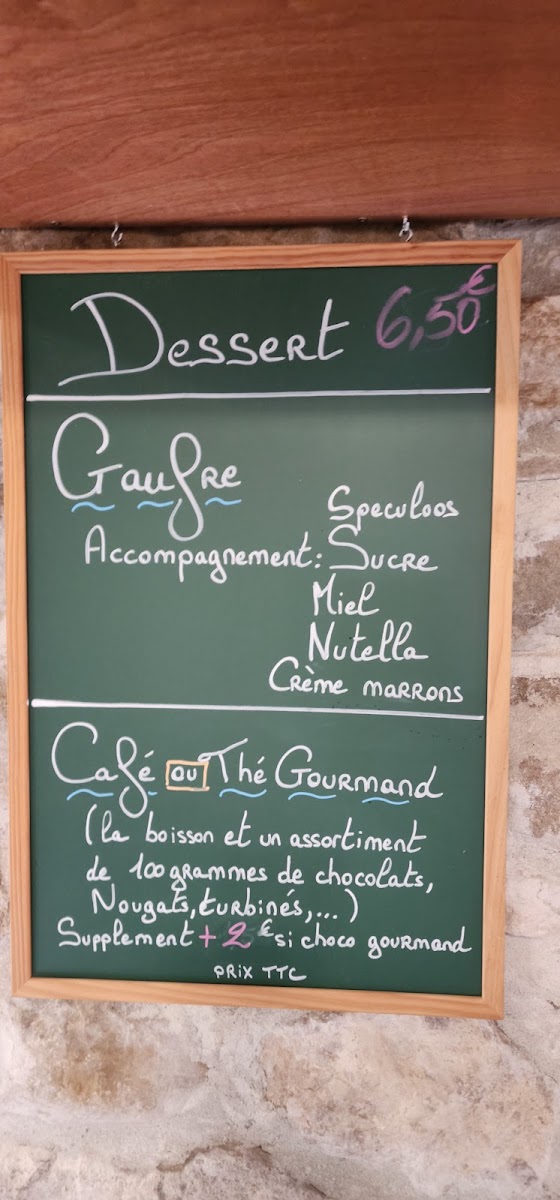 Dessert 6,50€
Gaufre
Speculoos
Accompagnement: Sucre
Miel
Nutella
Crème marrons
Café ou Thé Gourmand
(la boisson et un assortiment
de 100 grammes de chocolats,
Nougats, turbinés,...)
Supplement + 2€ si choco gourmand
PRIX TTC